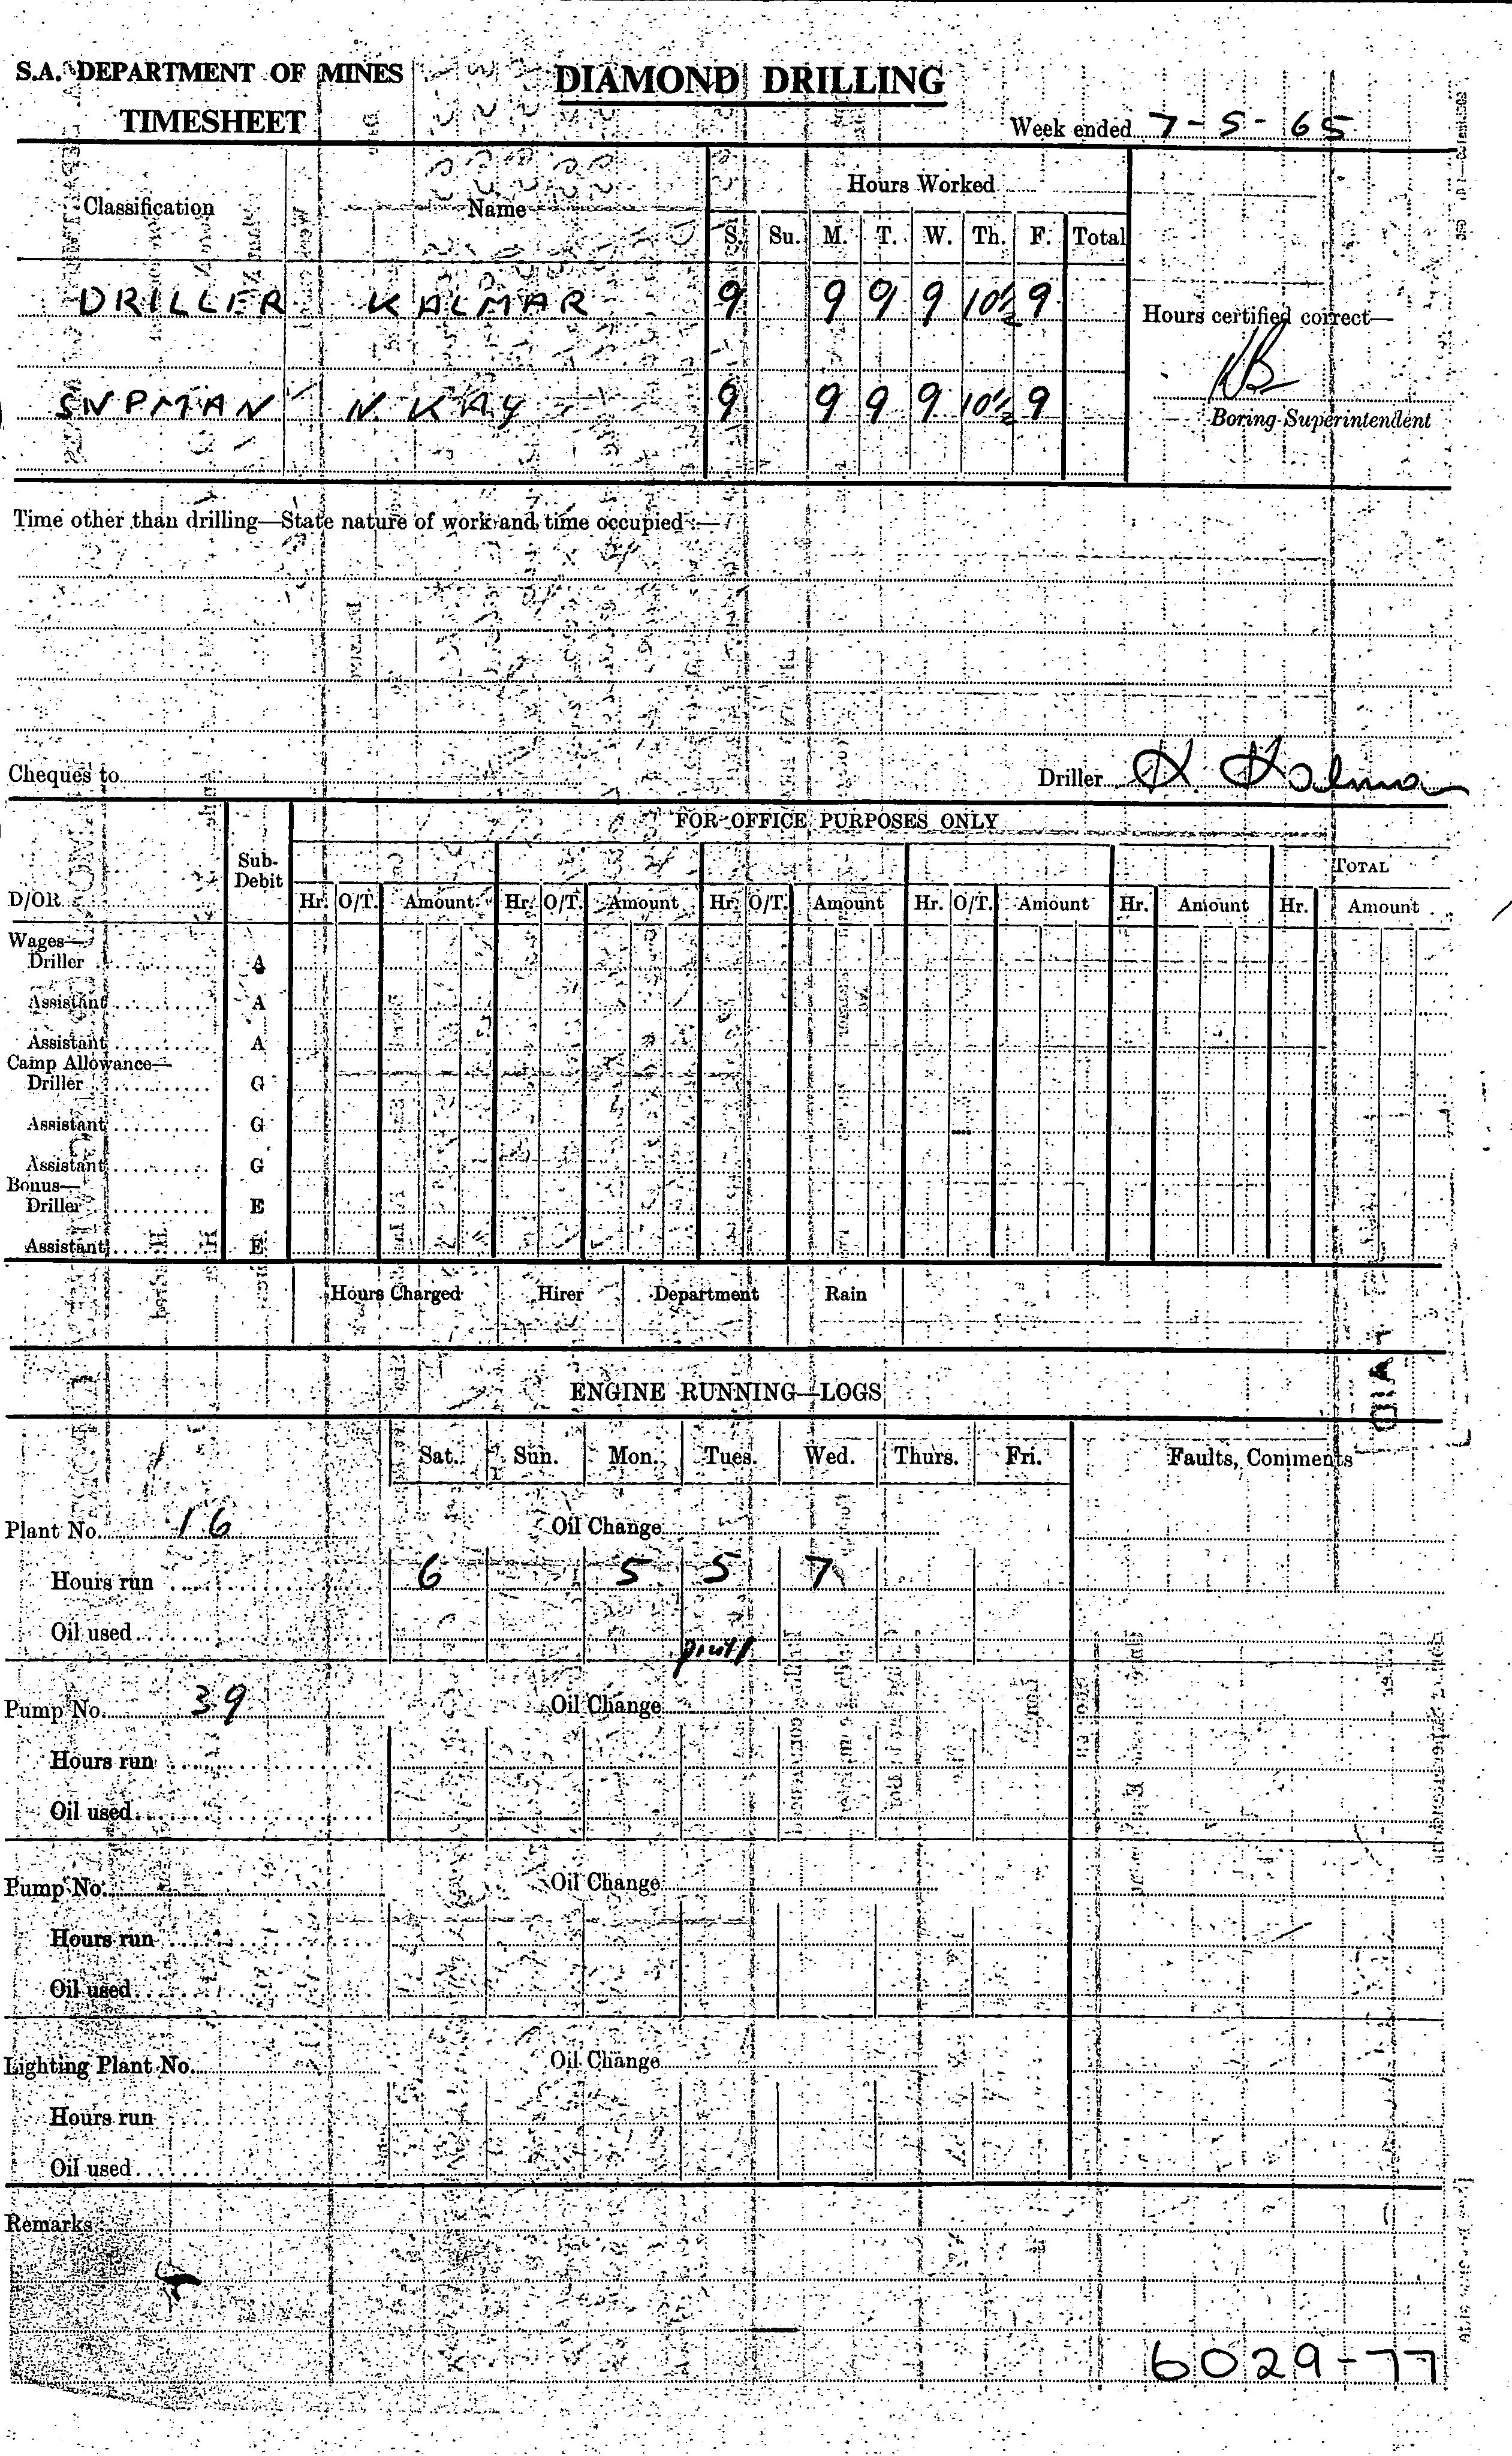 S.A. DEPARTMENT OF MINES
DIAMOND DRILLING
TIMESHEET
Week ended 7-5-65
Classification Name Hours Worked
S. Su. M. T. W. Th. F. Total
DRILLER KALMAR 9 9 9 9 10½ 9
Hours certified correct—
KB
SNPMAN N. KAY 9 9 9 9 10½ 9
Boring Superintendent
Time other than drilling—State nature of work and time occupied :—
Cheques to
Driller K. Kalmar
FOR OFFICE PURPOSES ONLY
Sub-Debit
TOTAL
D/OR Hr. O/T. Amount Hr. O/T. Amount Hr. O/T. Amount Hr. O/T. Amount Hr. Amount Hr. Amount
Wages—
Driller A
Assistant A
Assistant A
Camp Allowance—
Driller G
Assistant G
Assistant G
Bonus—
Driller E
Assistant E
Hours Charged Hirer Department Rain
ENGINE RUNNING—LOGS
Sat. Sun. Mon. Tues. Wed. Thurs. Fri. Faults, Comments
Plant No. 16 Oil Change
Hours run 6 5 5 7
Oil used
Pump No. 39 Oil Change
Hours run
Oil used
Pump No. Oil Change
Hours run
Oil used
Lighting Plant No. Oil Change
Hours run
Oil used
Remarks
6029-77